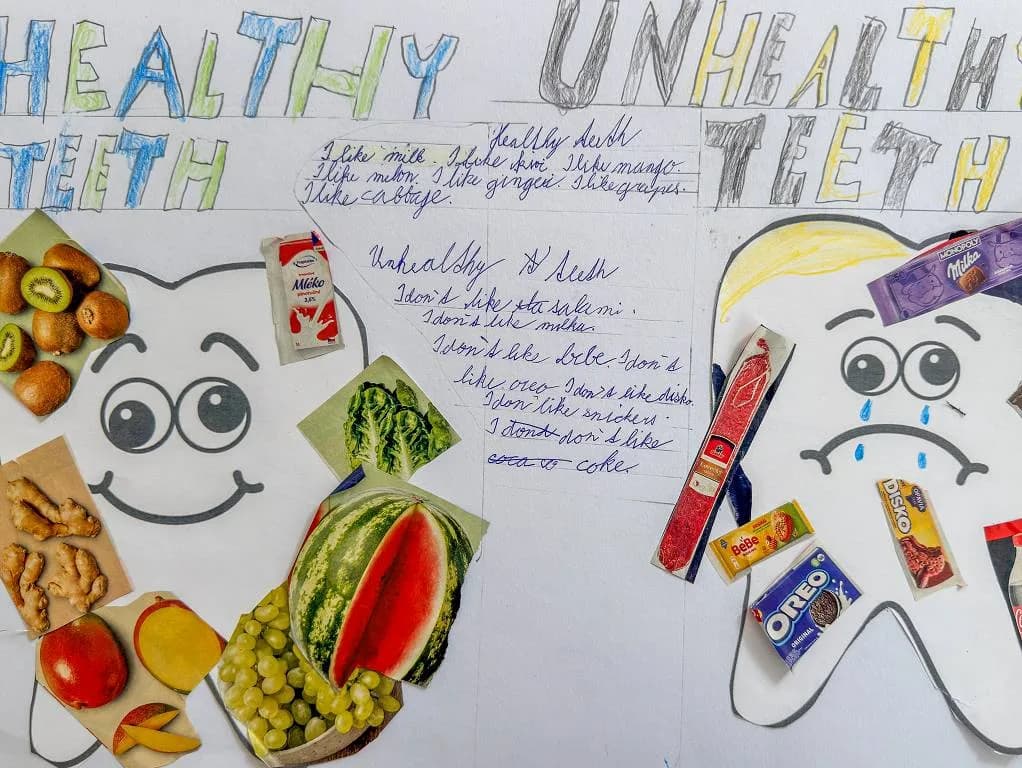 HEALTHY
TEETH
UNHEALTHY
TEETH
Healthy teeth
I like milk. I like kiwi. I like mango.
I like melon. I like ginger. I like grapes.
I like cabbage.
Unhealthy teeth
I don's like salami.
I don's like milka.
I don's like bebe. I don's
like oreo I don's like disko.
I don' like snickers.
I don's like
coke.
Mléko
3,5%
MONOPOLY
Milka
BeBe
OREO
ORIGINAL
DISKO